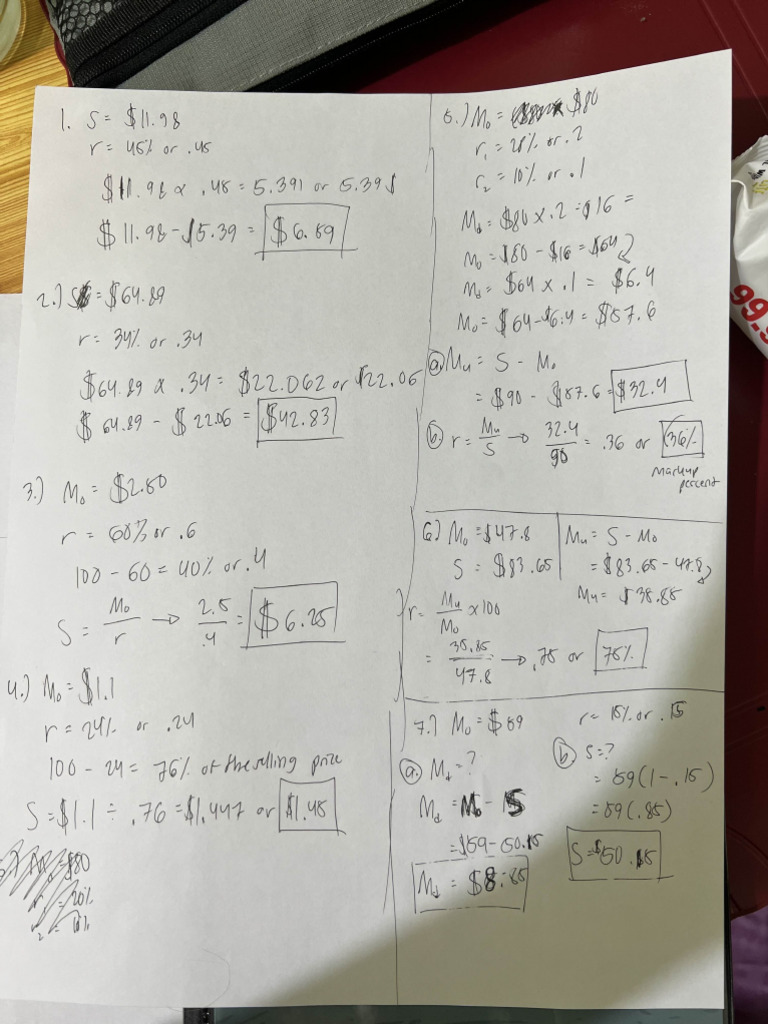 1. S = $11.98
r = 45% or .45
$11.98 x .45 = 5.391 or 5.39
$11.98 - $5.39 = $6.59
2.) S = $64.89
r = 34% or .34
$64.89 x .34 = $22.062 or $22.06
$64.89 - $22.06 = $42.83
3.) Mo = $2.50
r = 60% or .6
100 - 60 = 40% or .4
S = Mo/r → 2.5/.4 = $6.25
4.) Mo = $1.1
r = 24% or .24
100 - 24 = 76% of the selling price
S = $1.1 ÷ .76 = $1.447 or $1.45
$80
= 20%
r2 = 10%
5.) Mo = $80
r1 = 20% or .2
r2 = 10% or .1
Md = $80 x .2 = $16 =
Mo = $80 - $16 = $64
Md = $64 x .1 = $6.4
Mo = $64 - $6.4 = $57.6
a. Mu = S - Mo
= $90 - $57.6 = $32.4
b. r = Mu/S → 32.4/90 = .36 or 36%
markup
percent
6) Mo = $47.8
S = $83.65
Mu = S - Mo
= $83.65 - 47.8
Mu = $35.85
r = Mu/Mo x100
= 35.85/47.8 → .75 or 75%
7.) Mo = $59
r = 15% or .15
a. Md = ?
Md = Mo - S
= $59 - 50.15
Md = $8.85
b. S = ?
= 59(1 - .15)
= 59(.85)
S = $50.15